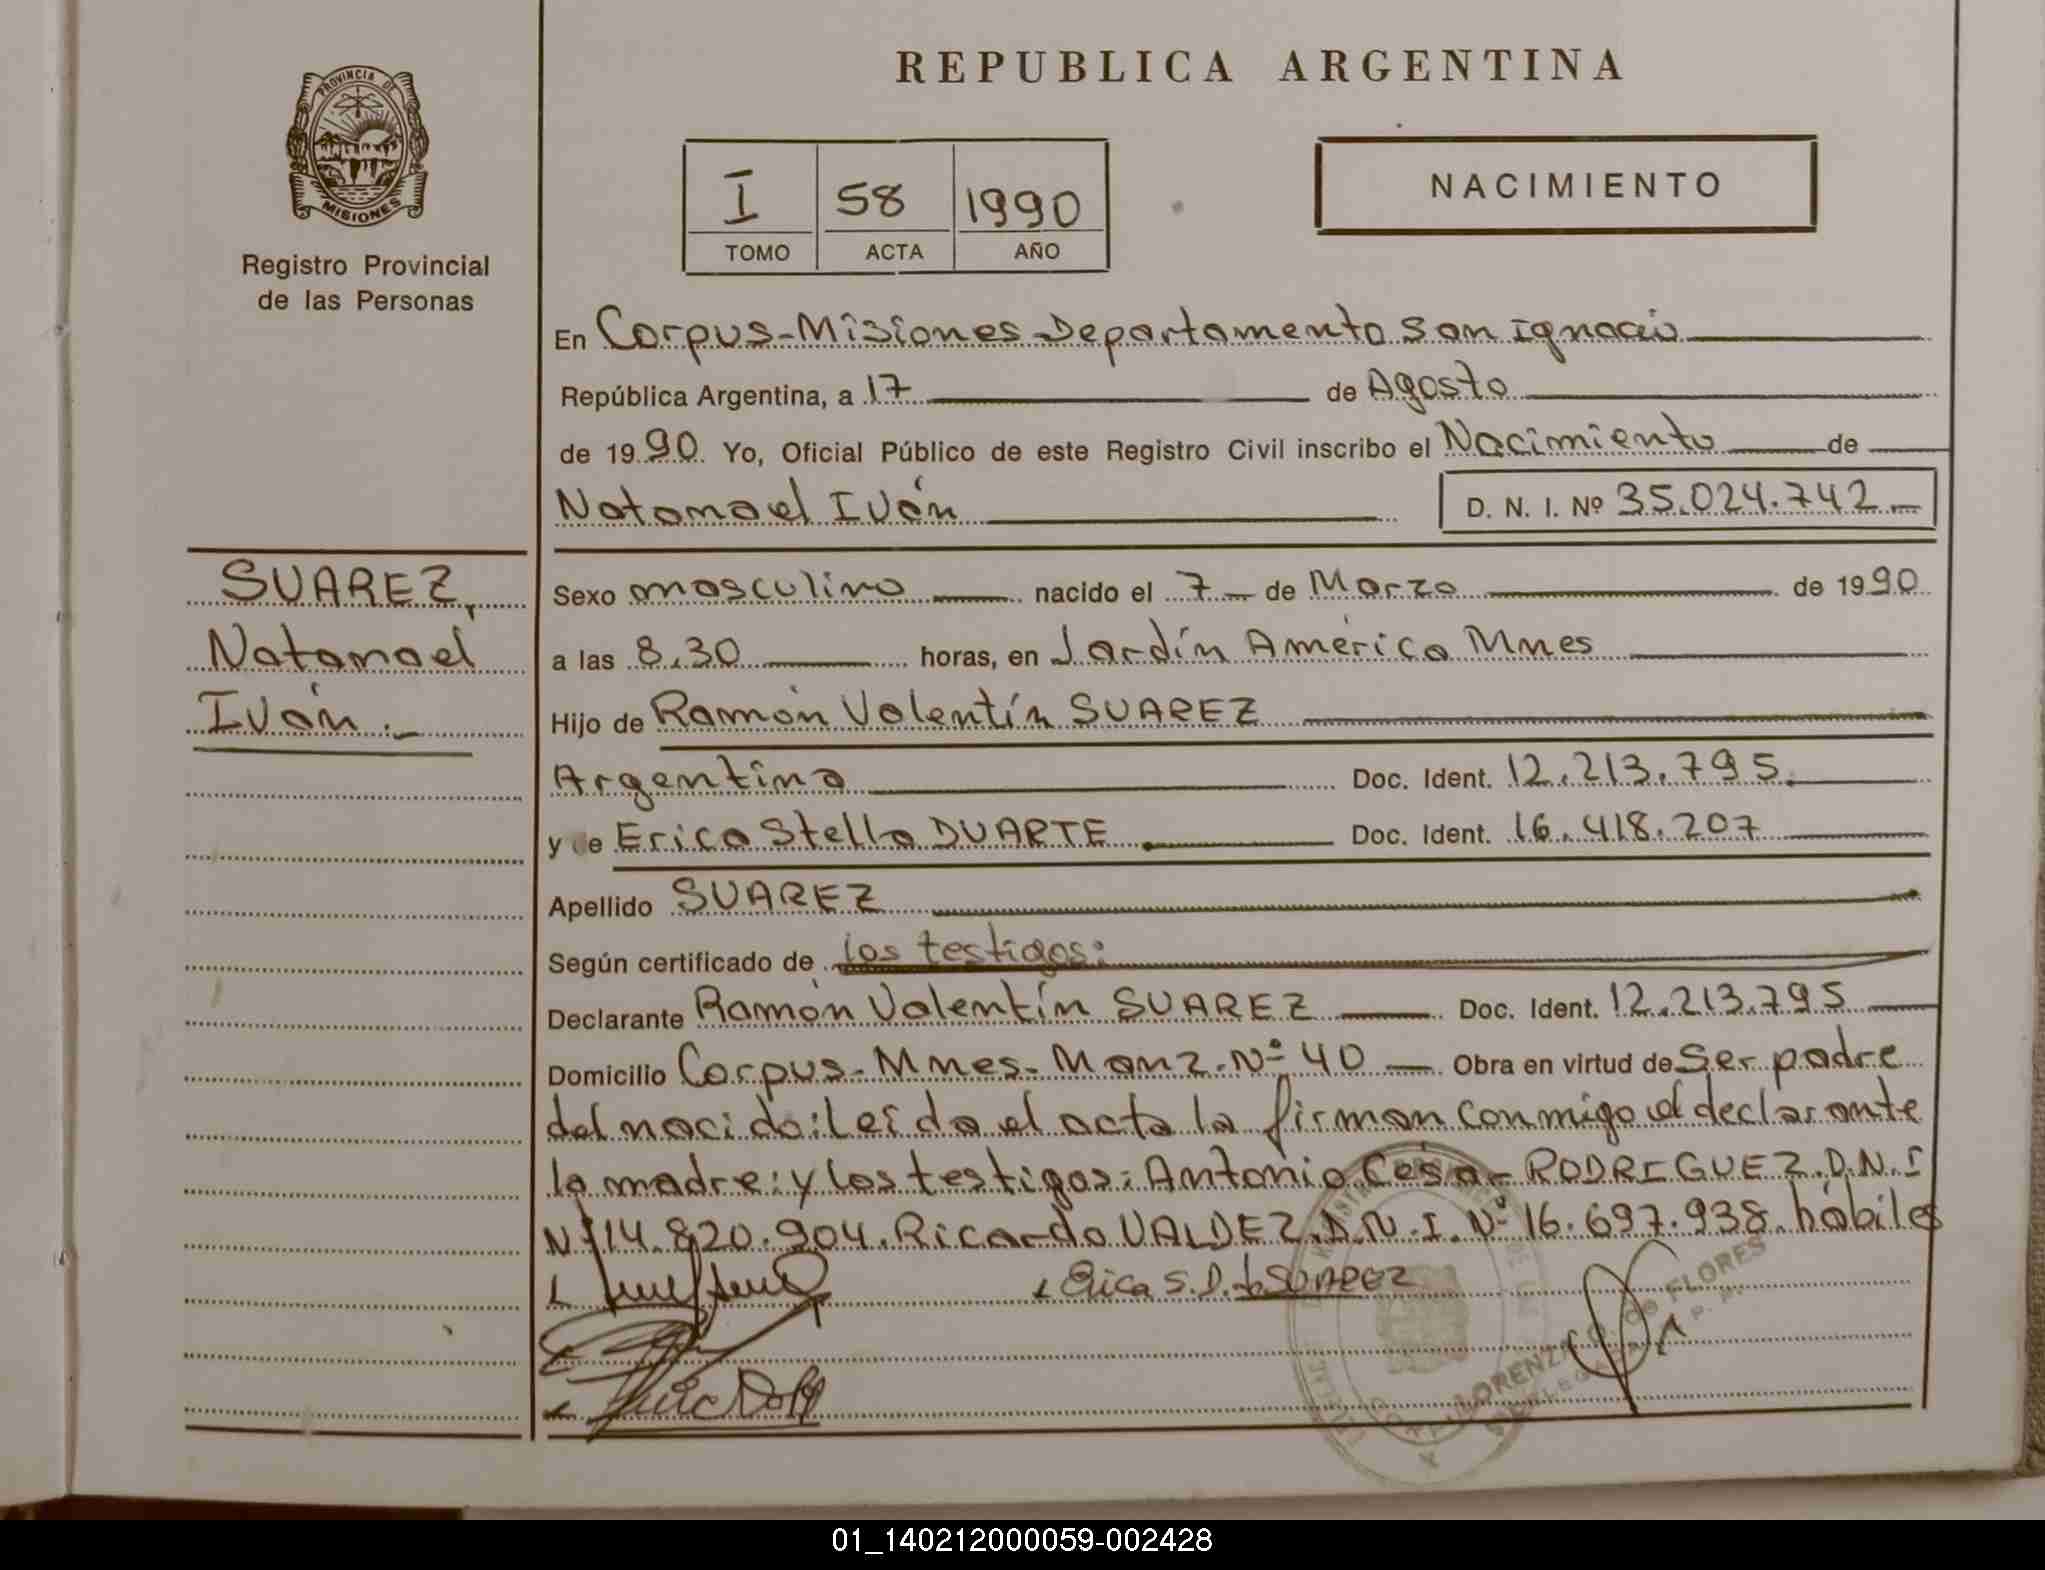 REPUBLICA ARGENTINA
PROVINCIA DE
MISIONES
Registro Provincial
de las Personas
I 58 1990
TOMO ACTA AÑO
NACIMIENTO
En Corpus-Misiones-Departamento San Ignacio
República Argentina, a 17 de Agosto
de 1990. Yo, Oficial Público de este Registro Civil inscribo el Nacimiento de
Natanael Iván D. N. I. Nº 35.024.742
SUAREZ,
Natanael
Iván.-
Sexo masculino nacido el 7 de Marzo de 1990
a las 8.30 horas, en Jardín América Mnes
Hijo de Ramón Valentín SUAREZ
Argentino Doc. Ident. 12.213.795.
y de Erica Stella DUARTE Doc. Ident. 16.418.207
Apellido SUAREZ
Según certificado de los testigos:
Declarante Ramón Valentín SUAREZ Doc. Ident. 12.213.795
Domicilio Corpus-Mnes-Manz.Nº 40 Obra en virtud de Ser padre
del nacido: Leída el acta la firman conmigo el declarante
la madre: y los testigos: Antonio César RODRIGUEZ.D.N.I
Nº 14.820.904. Ricardo VALDEZ.D.N.I.Nº 16.697.938. hábiles
Erica S.D. de SUAREZ
LORENZA D. de FLORES
01_140212000059-002428